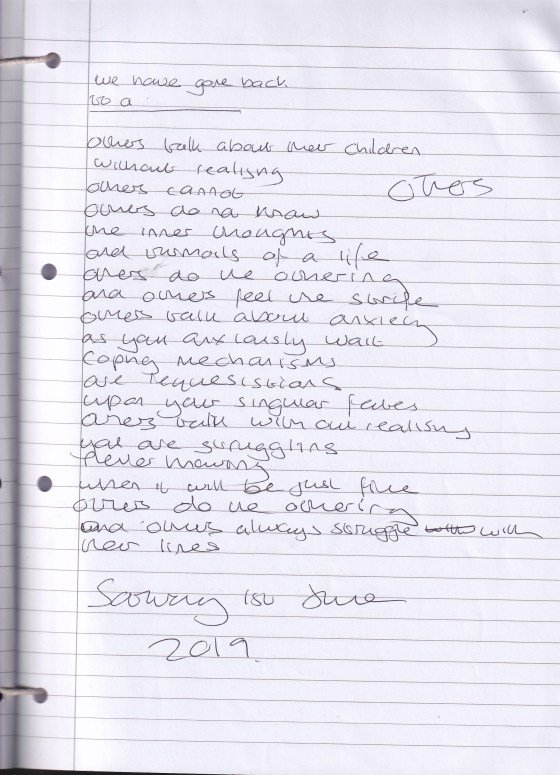 we have gone back
to a
others talk about their children
without realising
others cannot
others
others do not know
the inner thoughts
and turmoils of a life
others do the othering
and others feel the strife
others talk about anxiety
as you anxiously wait
coping mechanisms
are requesistions
upon your singular
others talk without realising
you are struggling
never knowing
when it will be just fine
others do the othering
and others always struggle with with
their lines
Saturday 1st June
2019.